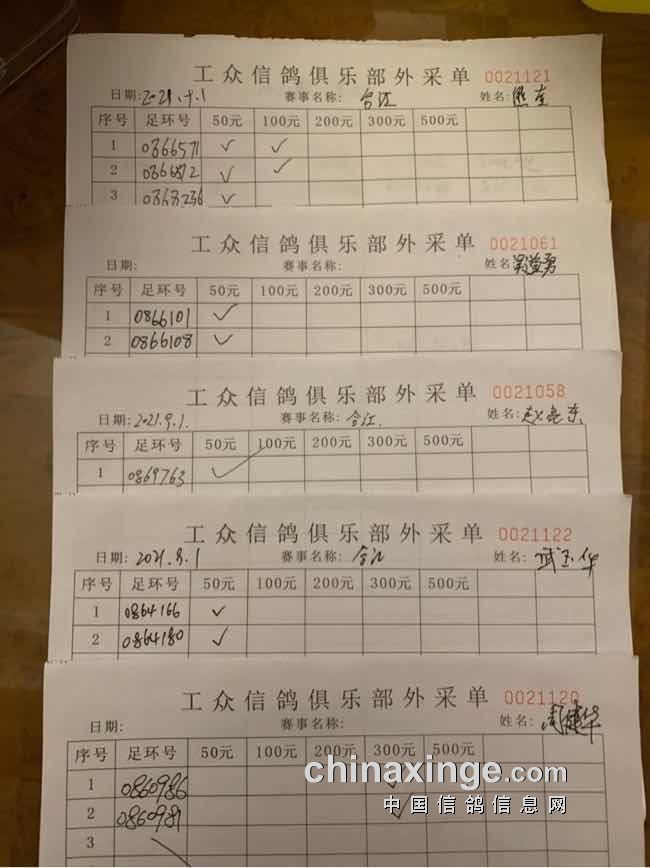 工众信鸽俱乐部外采单 0021121
日期: 2021.9.1 赛事名称: 合江 姓名: 熊
序号 足环号 50元 100元 200元 300元 500元
1 0866571 ✓ ✓
2 ✓ ✓
3 0863236 ✓
工众信鸽俱乐部外采单 0021061
日期: 赛事名称: 姓名: 吴益勇
序号 足环号 50元 100元 200元 300元 500元
1 0866101 ✓
2 0866108 ✓
工众信鸽俱乐部外采单 0021058
日期: 2021.9.1. 赛事名称: 合江. 姓名: 赵东
序号 足环号 50元 100元 200元 300元 500元
1 0869763 ✓
工众信鸽俱乐部外采单 0021122
日期: 2021.9.1 赛事名称: 合江 姓名: 武玉华
序号 足环号 50元 100元 200元 300元 500元
1 0864166 ✓
2 0864180 ✓
工众信鸽俱乐部外采单 0021120
日期: 赛事名称: 姓名: 周健华
序号 足环号 50元 100元 200元 300元 500元
1 0860986 ✓
2 0860981 ✓
3
chinaxinge.com
中国信鸽信息网